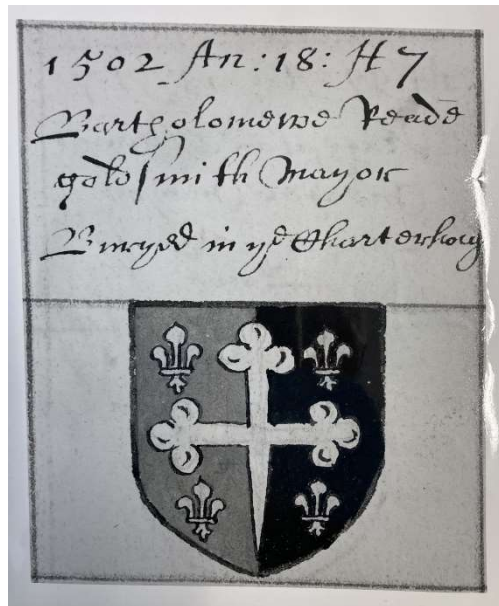 1502 An: 18: H 7
Bartholomewe Reade
goldsmith Mayor
Buryed in ye Charterhous